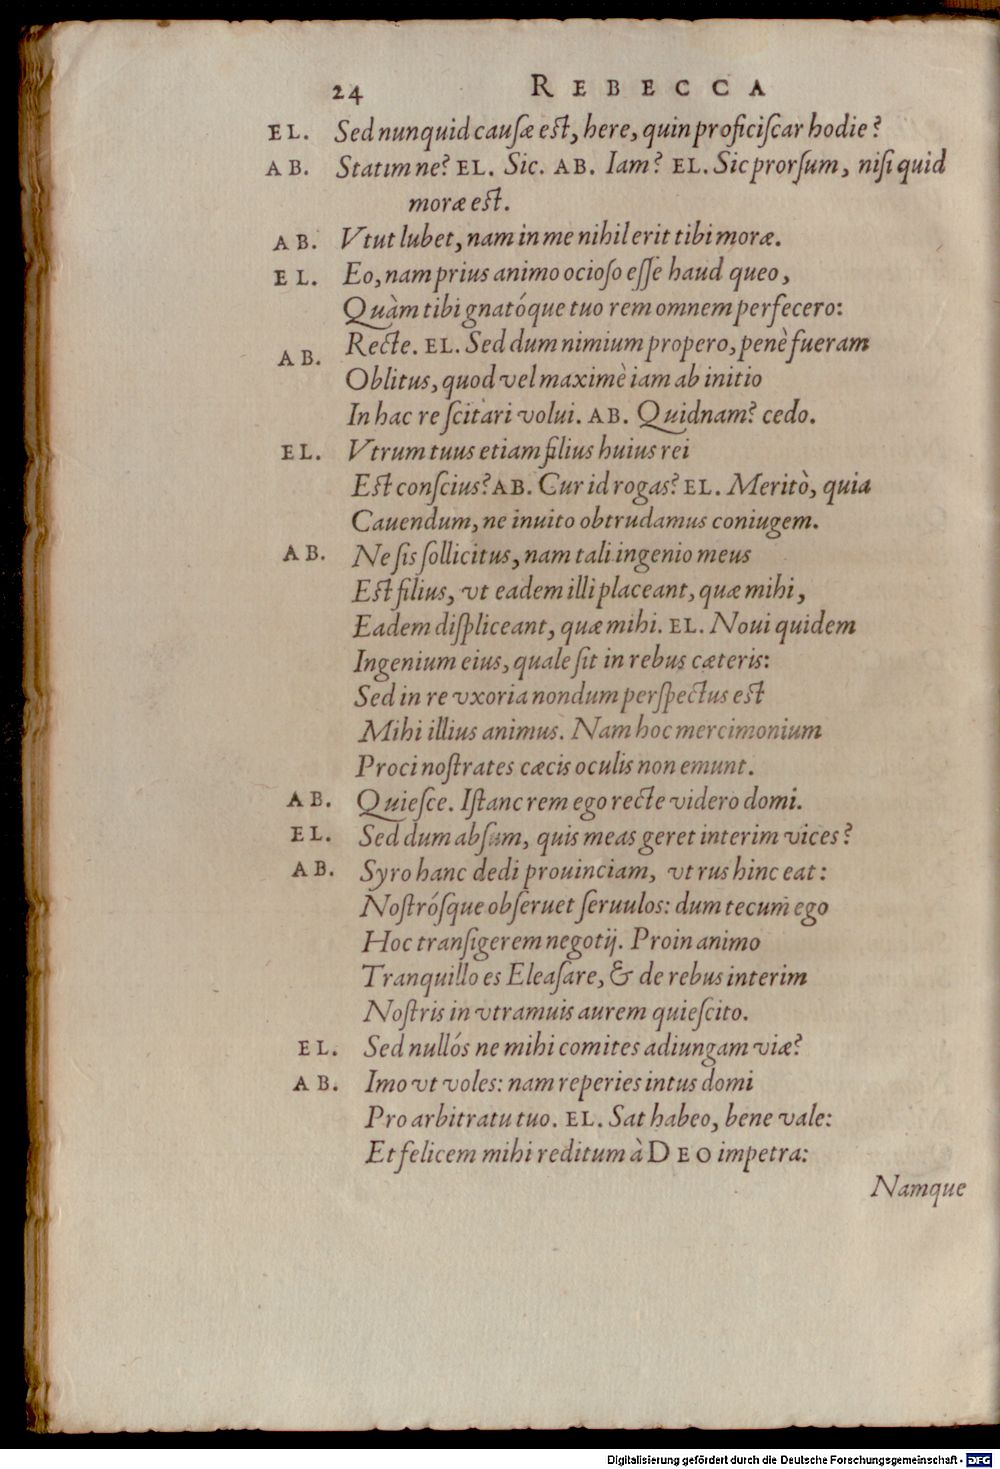 24 REBECCA
EL. Sed nunquid causæ est, here, quin proficiscar hodie?
AB. Statim ne? EL. Sic. AB. Iam? EL. Sic prorsum, nisi quid
moræ est.
AB. Vtut lubet, nam in me nihil erit tibi moræ.
EL. Eo, nam prius animo ocioso esse haud queo,
Quàm tibi gnatóque tuo rem omnem perfecero:
AB. Recte. EL. Sed dum nimium propero, penè fueram
Oblitus, quod vel maximè iam ab initio
In hac re scitari volui. AB. Quidnam? cedo.
EL. Vtrum tuus etiam filius huius rei
Est conscius? AB. Cur id rogas? EL. Meritò, quia
Cauendum, ne inuito obtrudamus coniugem.
AB. Ne sis sollicitus, nam tali ingenio meus
Est filius, vt eadem illi placeant, quæ mihi,
Eadem displiceant, quæ mihi. EL. Noui quidem
Ingenium eius, quale sit in rebus cæteris:
Sed in re vxoria nondum perspectus est
Mihi illius animus. Nam hoc mercimonium
Proci nostrates cæcis oculis non emunt.
AB. Quiesce. Istanc rem ego recte videro domi.
EL. Sed dum absum, quis meas geret interim vices?
AB. Syro hanc dedi prouinciam, vt rus hinc eat:
Nostrósque obseruet seruulos: dum tecum ego
Hoc transigerem negotij. Proin animo
Tranquillo es Eleasare, & de rebus interim
Nostris in vtramuis aurem quiescito.
EL. Sed nullós ne mihi comites adiungam viæ?
AB. Imo vt voles: nam reperies intus domi
Pro arbitratu tuo. EL. Sat habeo, bene vale:
Et felicem mihi reditum à DEO impetra:
Namque
Digitalisierung gefördert durch die Deutsche Forschungsgemeinschaft - DFG